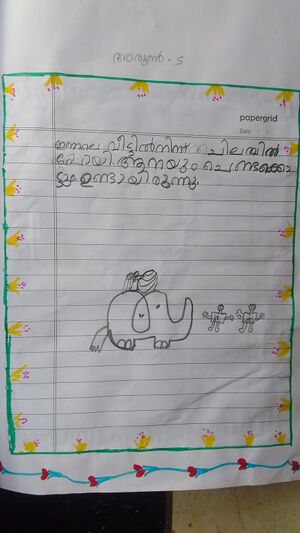 അരുൺ. s
papergrid
Date: / /
ഇന്നലെ വീട്ടിൽനിന്ന്
പോയി. ആനയും ചെണ്ടക്കൊ
ട്ടും ഉണ്ടായിരുന്നു.